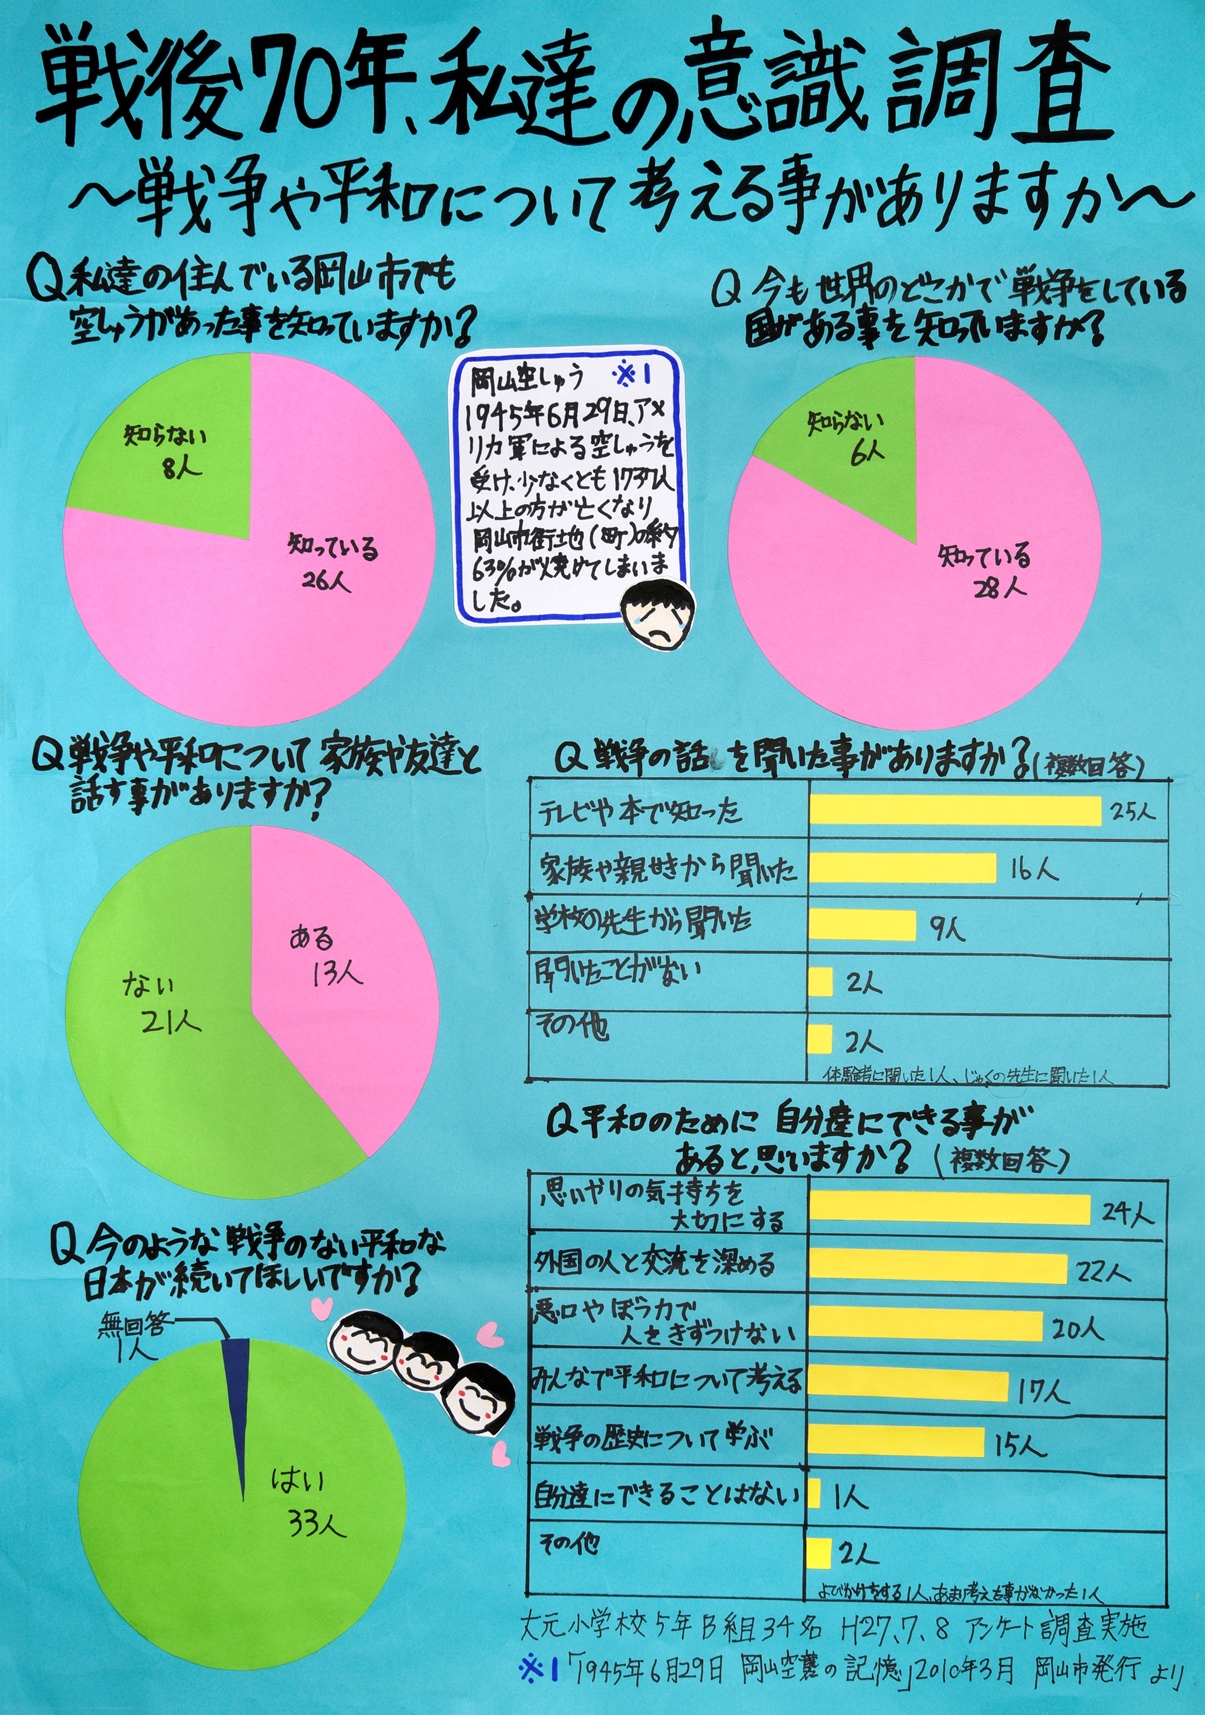 戦後70年、私達の意識調査
～戦争や平和について考える事がありますか～
Q 私達の住んでいる岡山市でも
空しゅうがあった事を知っていますか？
知らない
8人
知っている
26人
岡山空しゅう ※1
1945年6月29日、アメ
リカ軍による空しゅうを
受け、少なくとも1737人
以上の方が亡くなり
岡山市街地(町)の約
63%が焼けてしまいま
した。
Q 今も世界のどこかで戦争をしている
国がある事を知っていますか？
知らない
6人
知っている
28人
Q 戦争や平和について家族や友達と
話す事がありますか？
ある
13人
ない
21人
Q 戦争の話を聞いた事がありますか？(複数回答)
テレビや本で知った 25人
家族や親せきから聞いた 16人
学校の先生から聞いた 9人
聞いたことがない 2人
その他 2人
体験者に聞いた1人、じゅくの先生に聞いた1人
Q 平和のために自分達にできる事が
あると思いますか？(複数回答)
思いやりの気持ちを
大切にする 24人
外国の人と交流を深める 22人
悪口やぼう力で
人をきずつけない 20人
みんなで平和について考える 17人
戦争の歴史について学ぶ 15人
自分達にできることはない 1人
その他 2人
よびかけをする1人、あまり考えた事がなかった1人
Q 今のような戦争のない平和な
日本が続いてほしいですか？
無回答
1人
はい
33人
大元小学校5年B組34名 H27.7.8 アンケート調査実施
※1「1945年6月29日 岡山空襲の記憶」2010年3月 岡山市発行 より